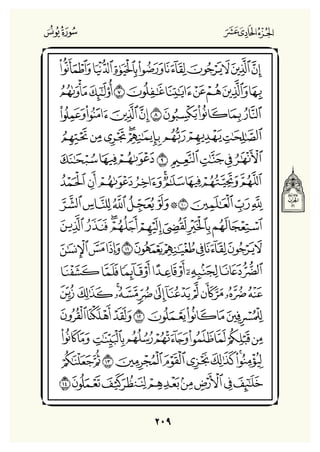 الجزء الحادي عشر
سورة يونس
إن الذين لا يرجون لقاءنا ورضوا بالحيوة الدنيا واطمأنوا
بها والذين هم عن ءايتنا غفلون ٧ أولئك مأوىهم
النار بما كانوا يكسبون ٨ إن الذين ءامنوا وعملوا
الصلحت يهديهم ربهم بإيمنهم تجري من تحتهم
الأنهر في جنت النعيم ٩ دعوىهم فيها سبحنك
اللهم وتحيتهم فيها سلم وءاخر دعوىهم أن الحمد
لله رب العلمين ١٠ ۞ ولو يعجل الله للناس الشر
استعجالهم بالخير لقضي إليهم أجلهم فنذر الذين
لا يرجون لقاءنا في طغينهم يعمهون ١١ وإذا مس الإنسن
الضر دعانا لجنبه أو قاعدا أو قائما فلما كشفنا
عنه ضره مر كأن لم يدعنا إلى ضر مسه كذلك زين
للمسرفين ما كانوا يعملون ١٢ ولقد أهلكنا القرون
من قبلكم لما ظلموا وجاءتهم رسلهم بالبينت وما كانوا
ليؤمنوا كذلك نجزي القوم المجرمين ١٣ ثم جعلنكم
خلئف في الأرض من بعدهم لننظر كيف تعملون ١٤
٢٠٩